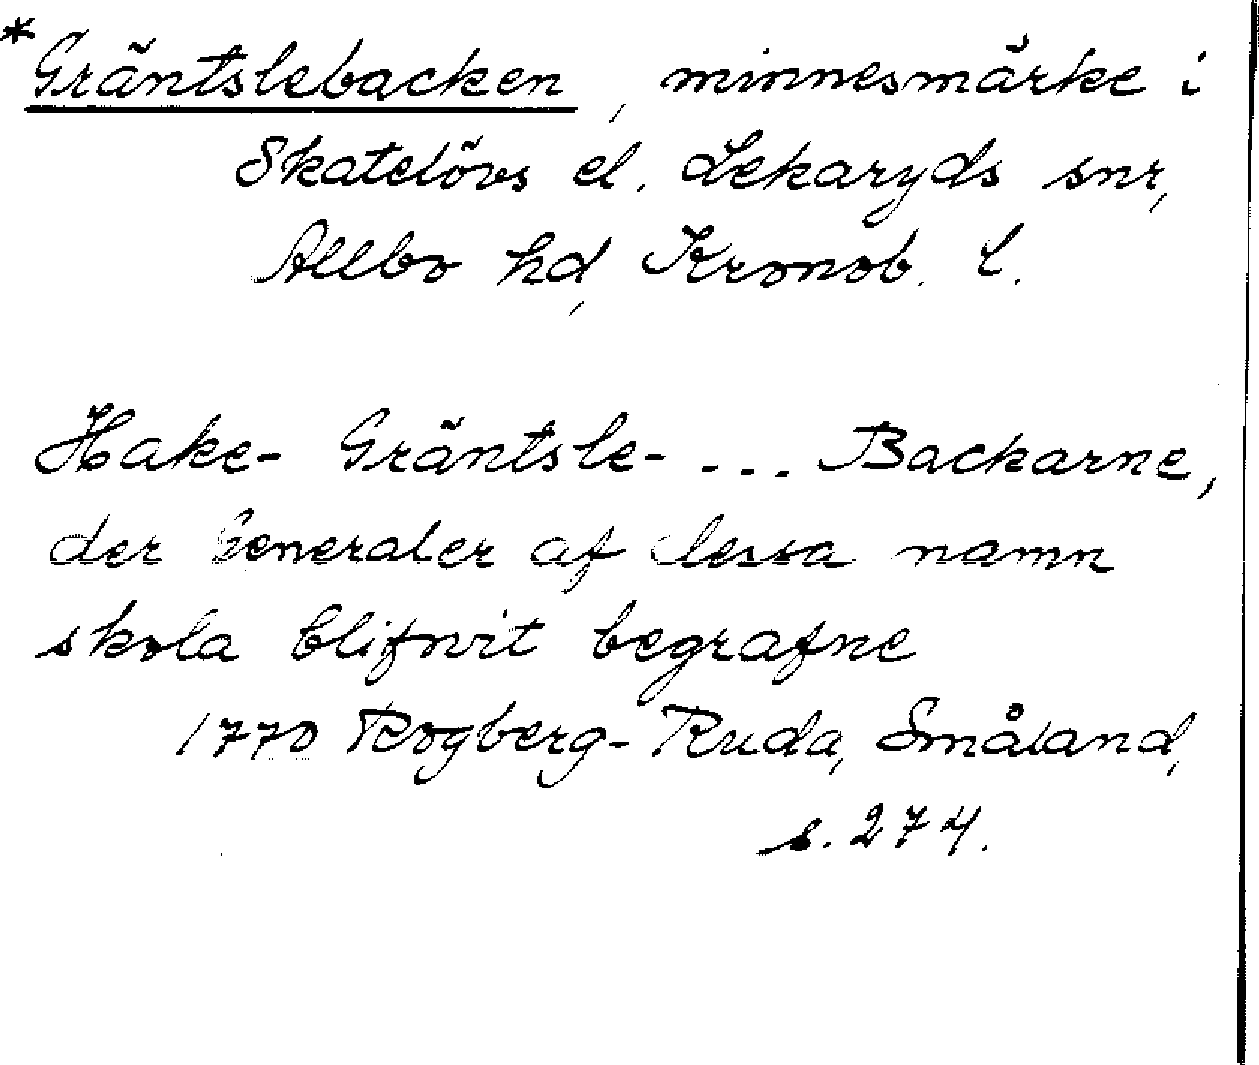 *Gräntslebacken, minnesmärke i
Skatelövs el. Lekaryds snr,
Allbo hd, Kronob. l.
Hake- Gräntsle- ... Backarne,
der Generaler af dessa namn
skola blifwit begrafne
1770 Rogberg-Ruda, Småland,
s. 274.